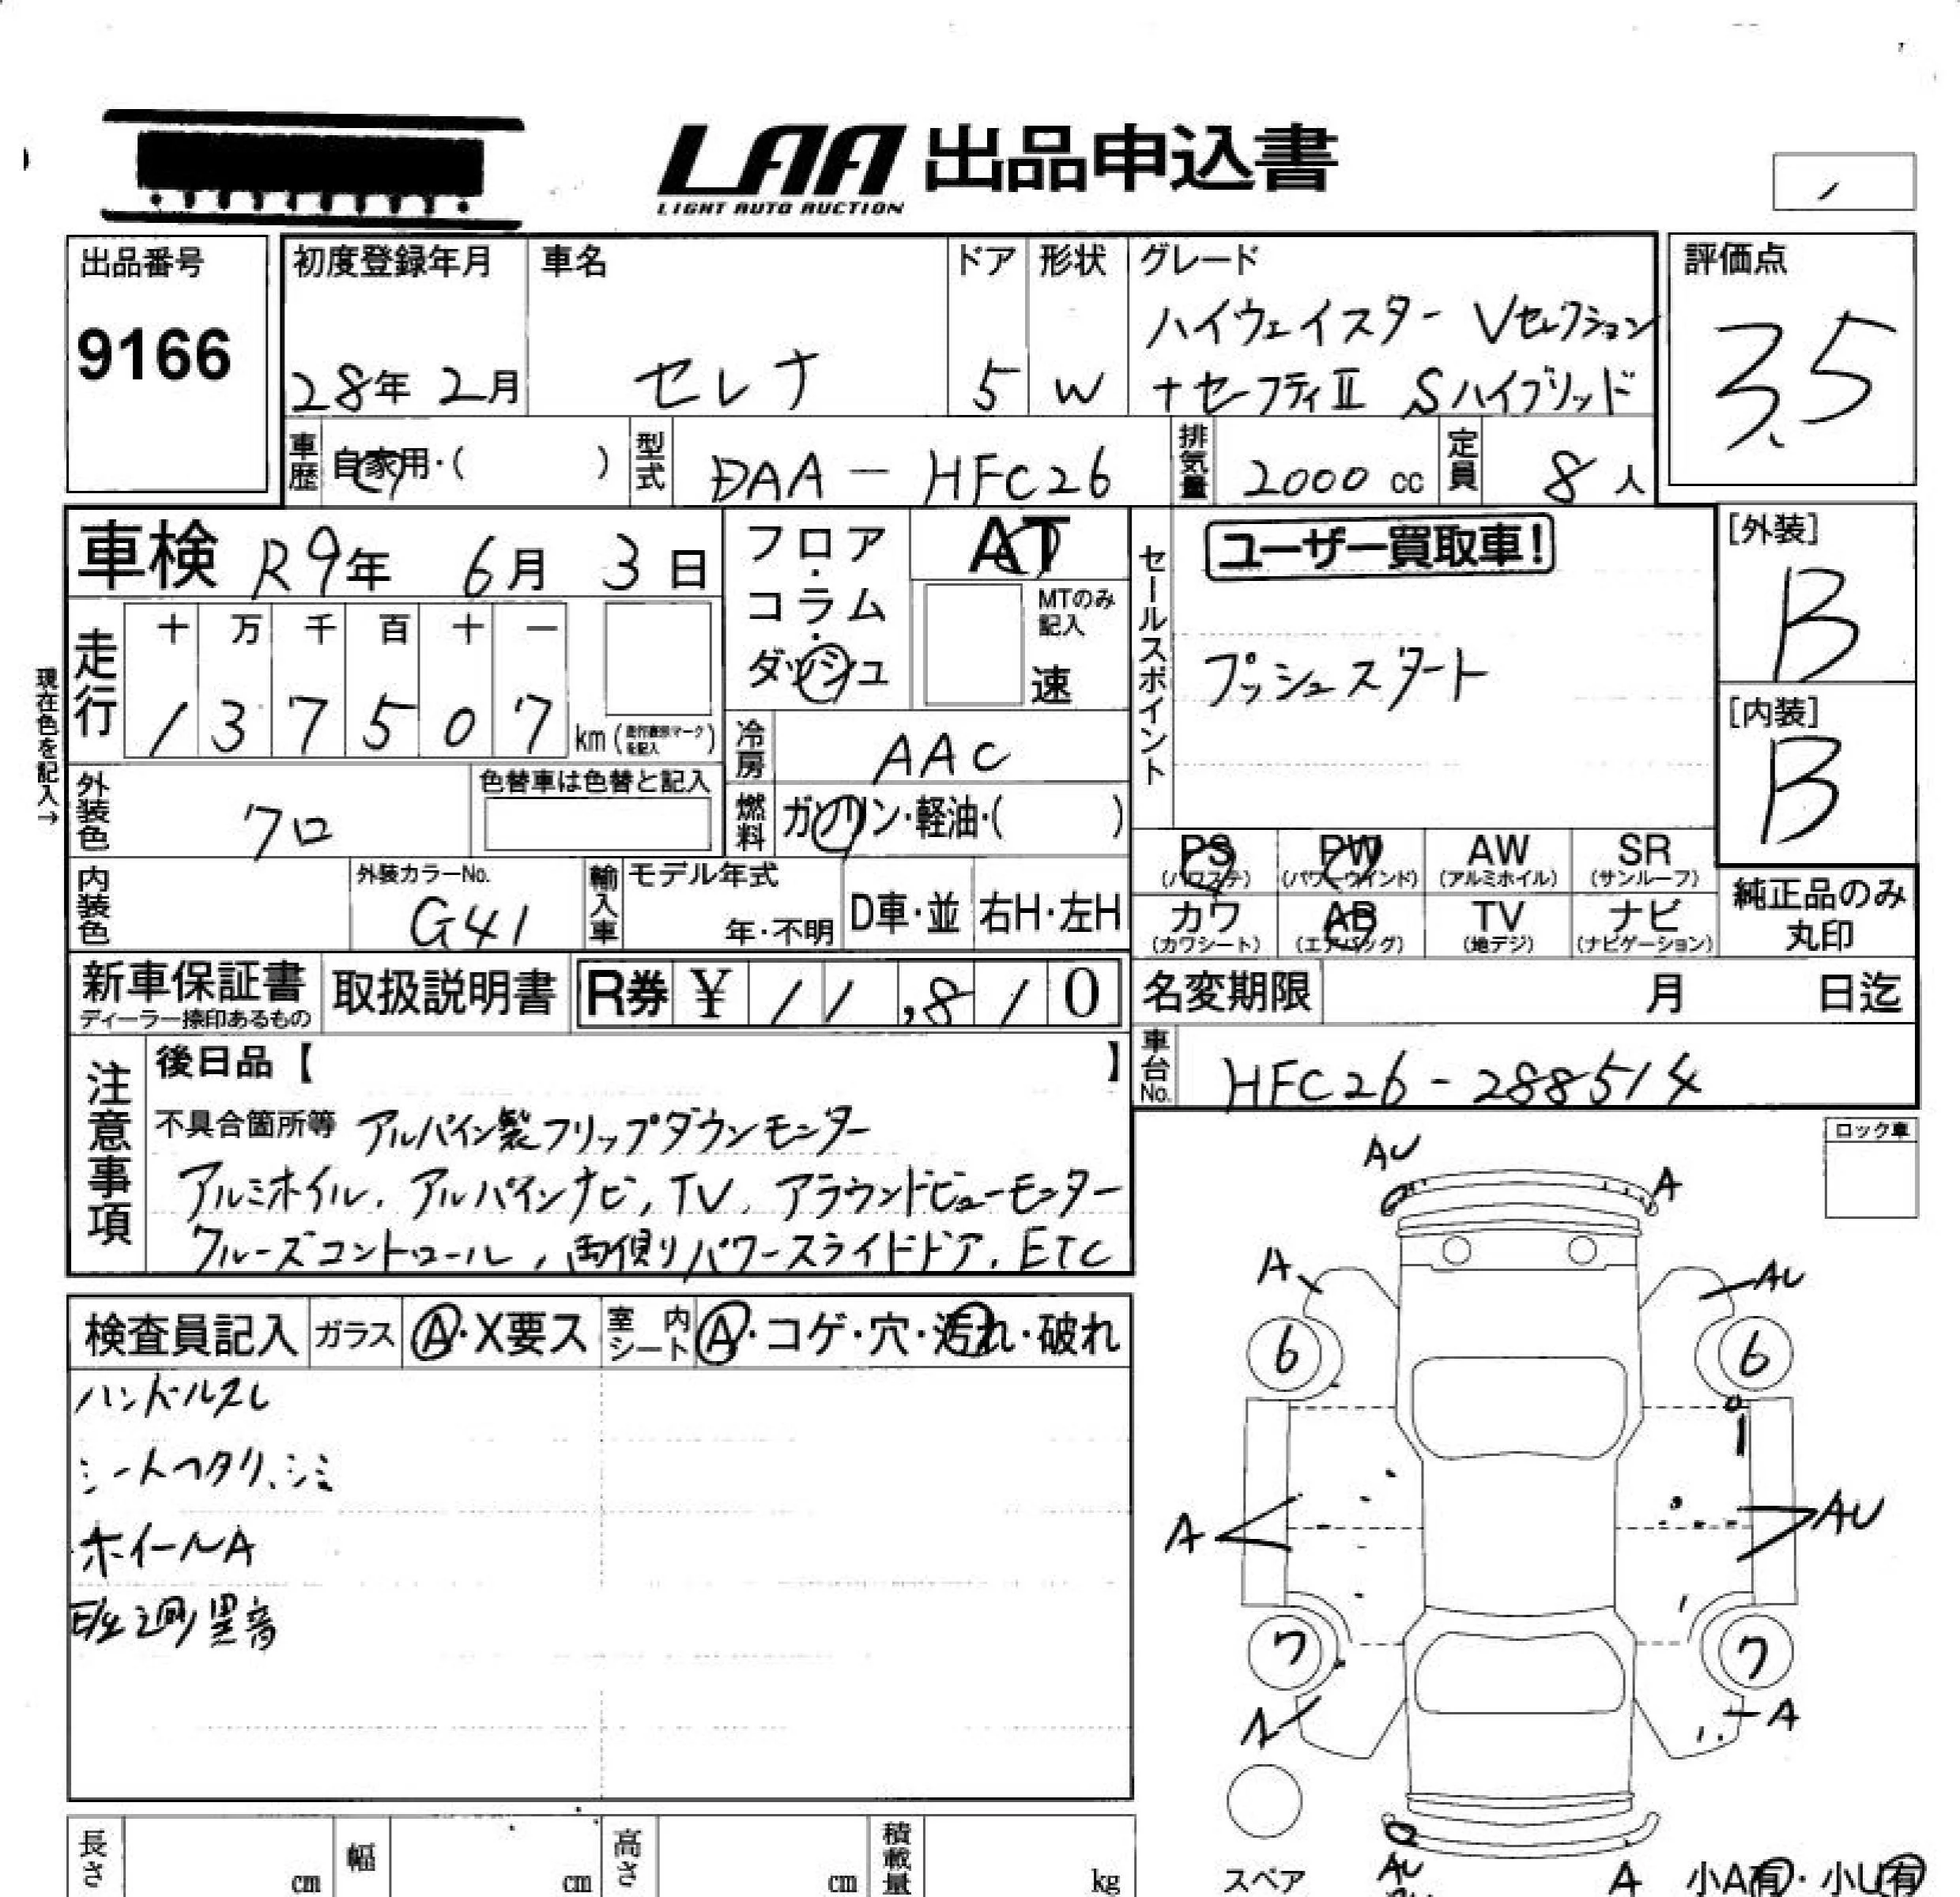 LAA 出品申込書
LIGHT AUTO AUCTION
出品番号
9166
初度登録年月
28年 2月
車名
セレナ
ドア
5
形状
W
グレード
ハイウェイスター Vセレクション
+セーフティⅡ Sハイブリッド
評価点
3.5
車歴 自家用・( )
型式 DAA-HFC26
排気量 2000 cc
定員 8人
車検 R9年 6月 3日
走行
十 万 千 百 十 一
1 3 7 5 0 7 km
現在色を記入→
フロア・コラム・ダッシュ
AT
MTのみ記入
速
冷房 AAC
燃料 ガソリン・軽油・( )
外装色 クロ
色替車は色替と記入
内装色
外装カラーNo.
G41
輸入車
モデル年式
年・不明
D車・並
右H・左H
セールスポイント
ユーザー買取車!
プッシュスタート
[外装]
B
[内装]
B
PS (パワステ)
PW (パワーウインド)
AW (アルミホイル)
SR (サンルーフ)
カワ (カワシート)
AB (エアバッグ)
TV (地デジ)
ナビ (ナビゲーション)
純正品のみ
丸印
新車保証書
ディーラー捺印あるもの
取扱説明書
R券 ¥ 11,810
名変期限 月 日迄
車台No. HFC26-288514
注意事項
後日品【 】
不具合箇所等 アルパイン製フリップダウンモニター
アルミホイル, アルパインナビ, TV, アラウンドビューモニター
クルーズコントロール, 両側パワースライドドア, ETC
検査員記入
ガラス Ⓐ・X要ス
室内シート Ⓐ・コゲ・穴・汚れ・破れ
ハンドルスレ
シートヘタリ、シミ
ホイールA
ロック車
AU
A
A
AU
6
6
A
AU
7
7
A
A
スペア
AU
A
小A有・小U有
長さ cm
幅 cm
高さ cm
積載量 kg